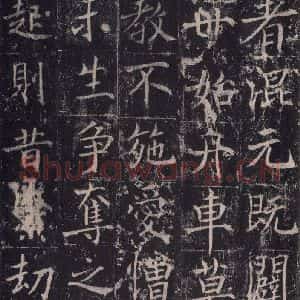 者混元既闢
始舟車莫
教不施愛憎
未生爭奪之
起則昔
Shufawang.Cn